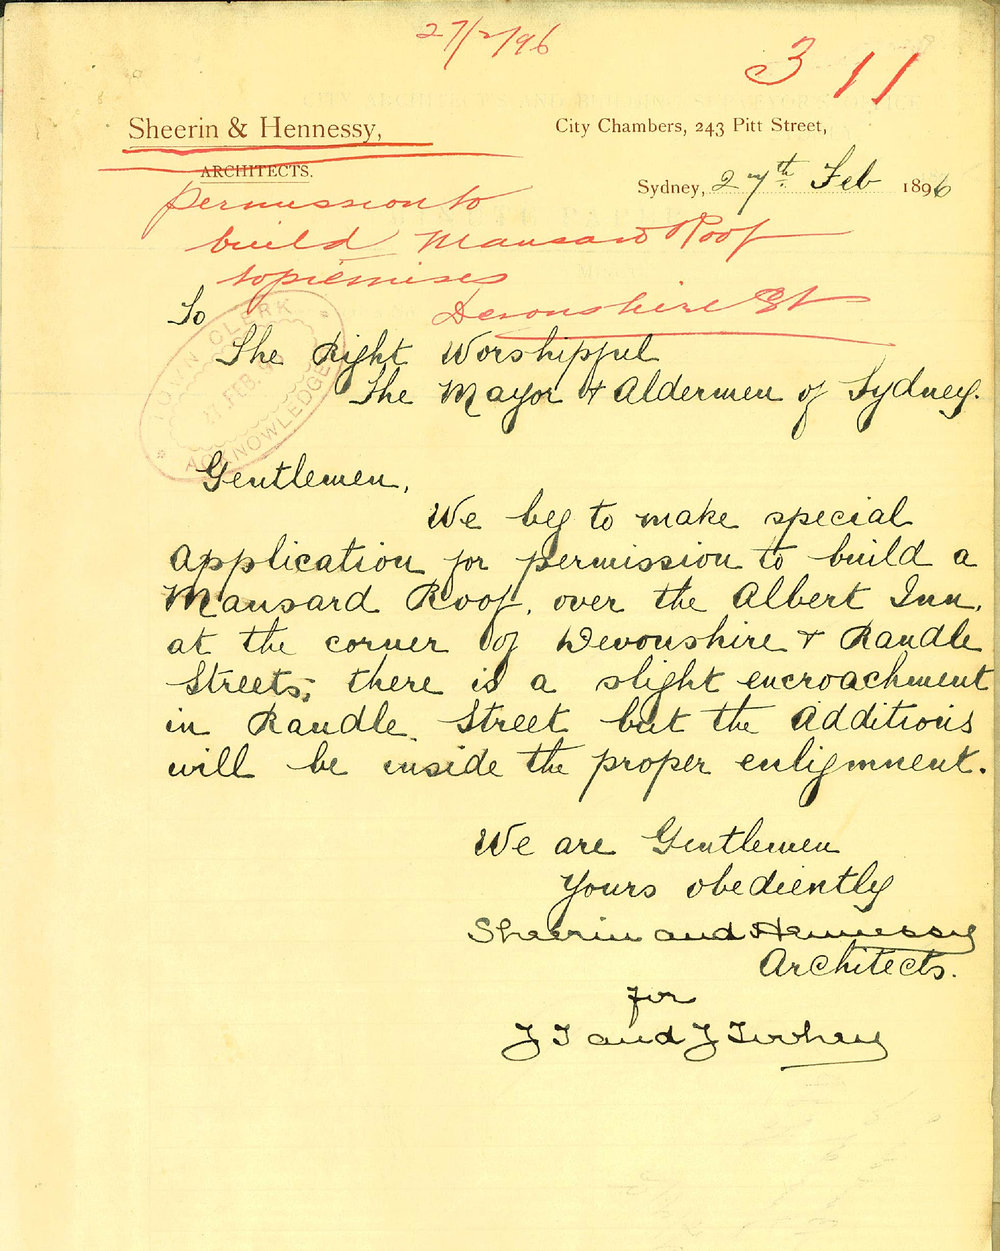 27/2/96
311
Sheerin & Hennessy,
ARCHITECTS.
City Chambers, 243 Pitt Street,
Sydney, 27th Feb 1896
Permission to
build Mansard Roof
to premises
Devonshire St
TOWN CLERK
27. FEB. 96
ACKNOWLEDGED
To
The Right Worshipful
The Mayor & Aldermen of Sydney.
Gentlemen,
We beg to make special
application for permission to build a
Mansard Roof, over the Albert Inn,
at the corner of Devonshire & Randle
Streets; there is a slight encroachment
in Randle Street but the additions
will be inside the proper enlignment.
We are Gentlemen
Yours obediently
Sheerin and Hennessy
Architects.
for
J T and J Toohey